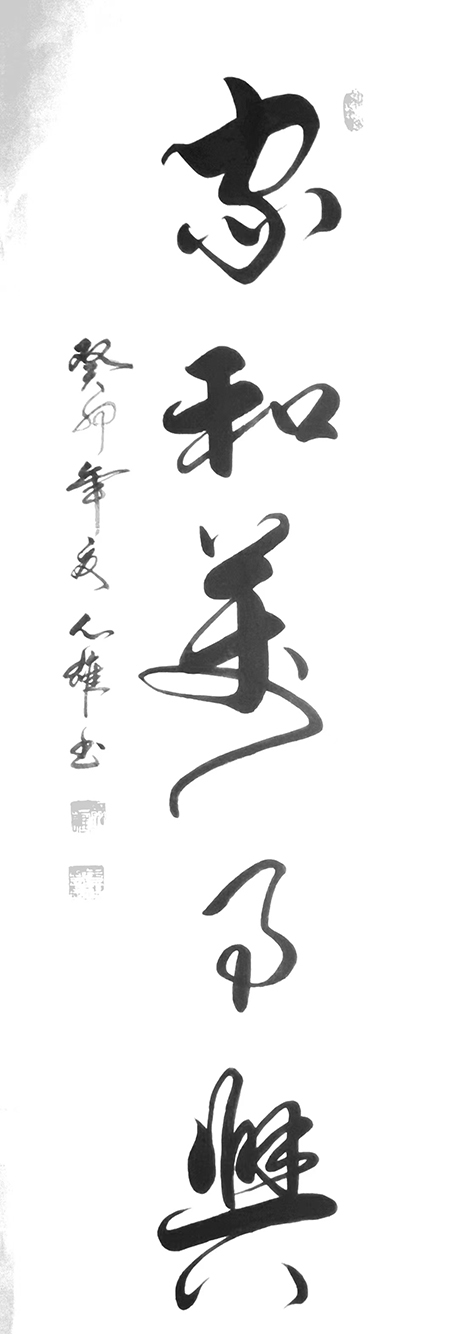 家和萬事興
癸卯年夏心雄书